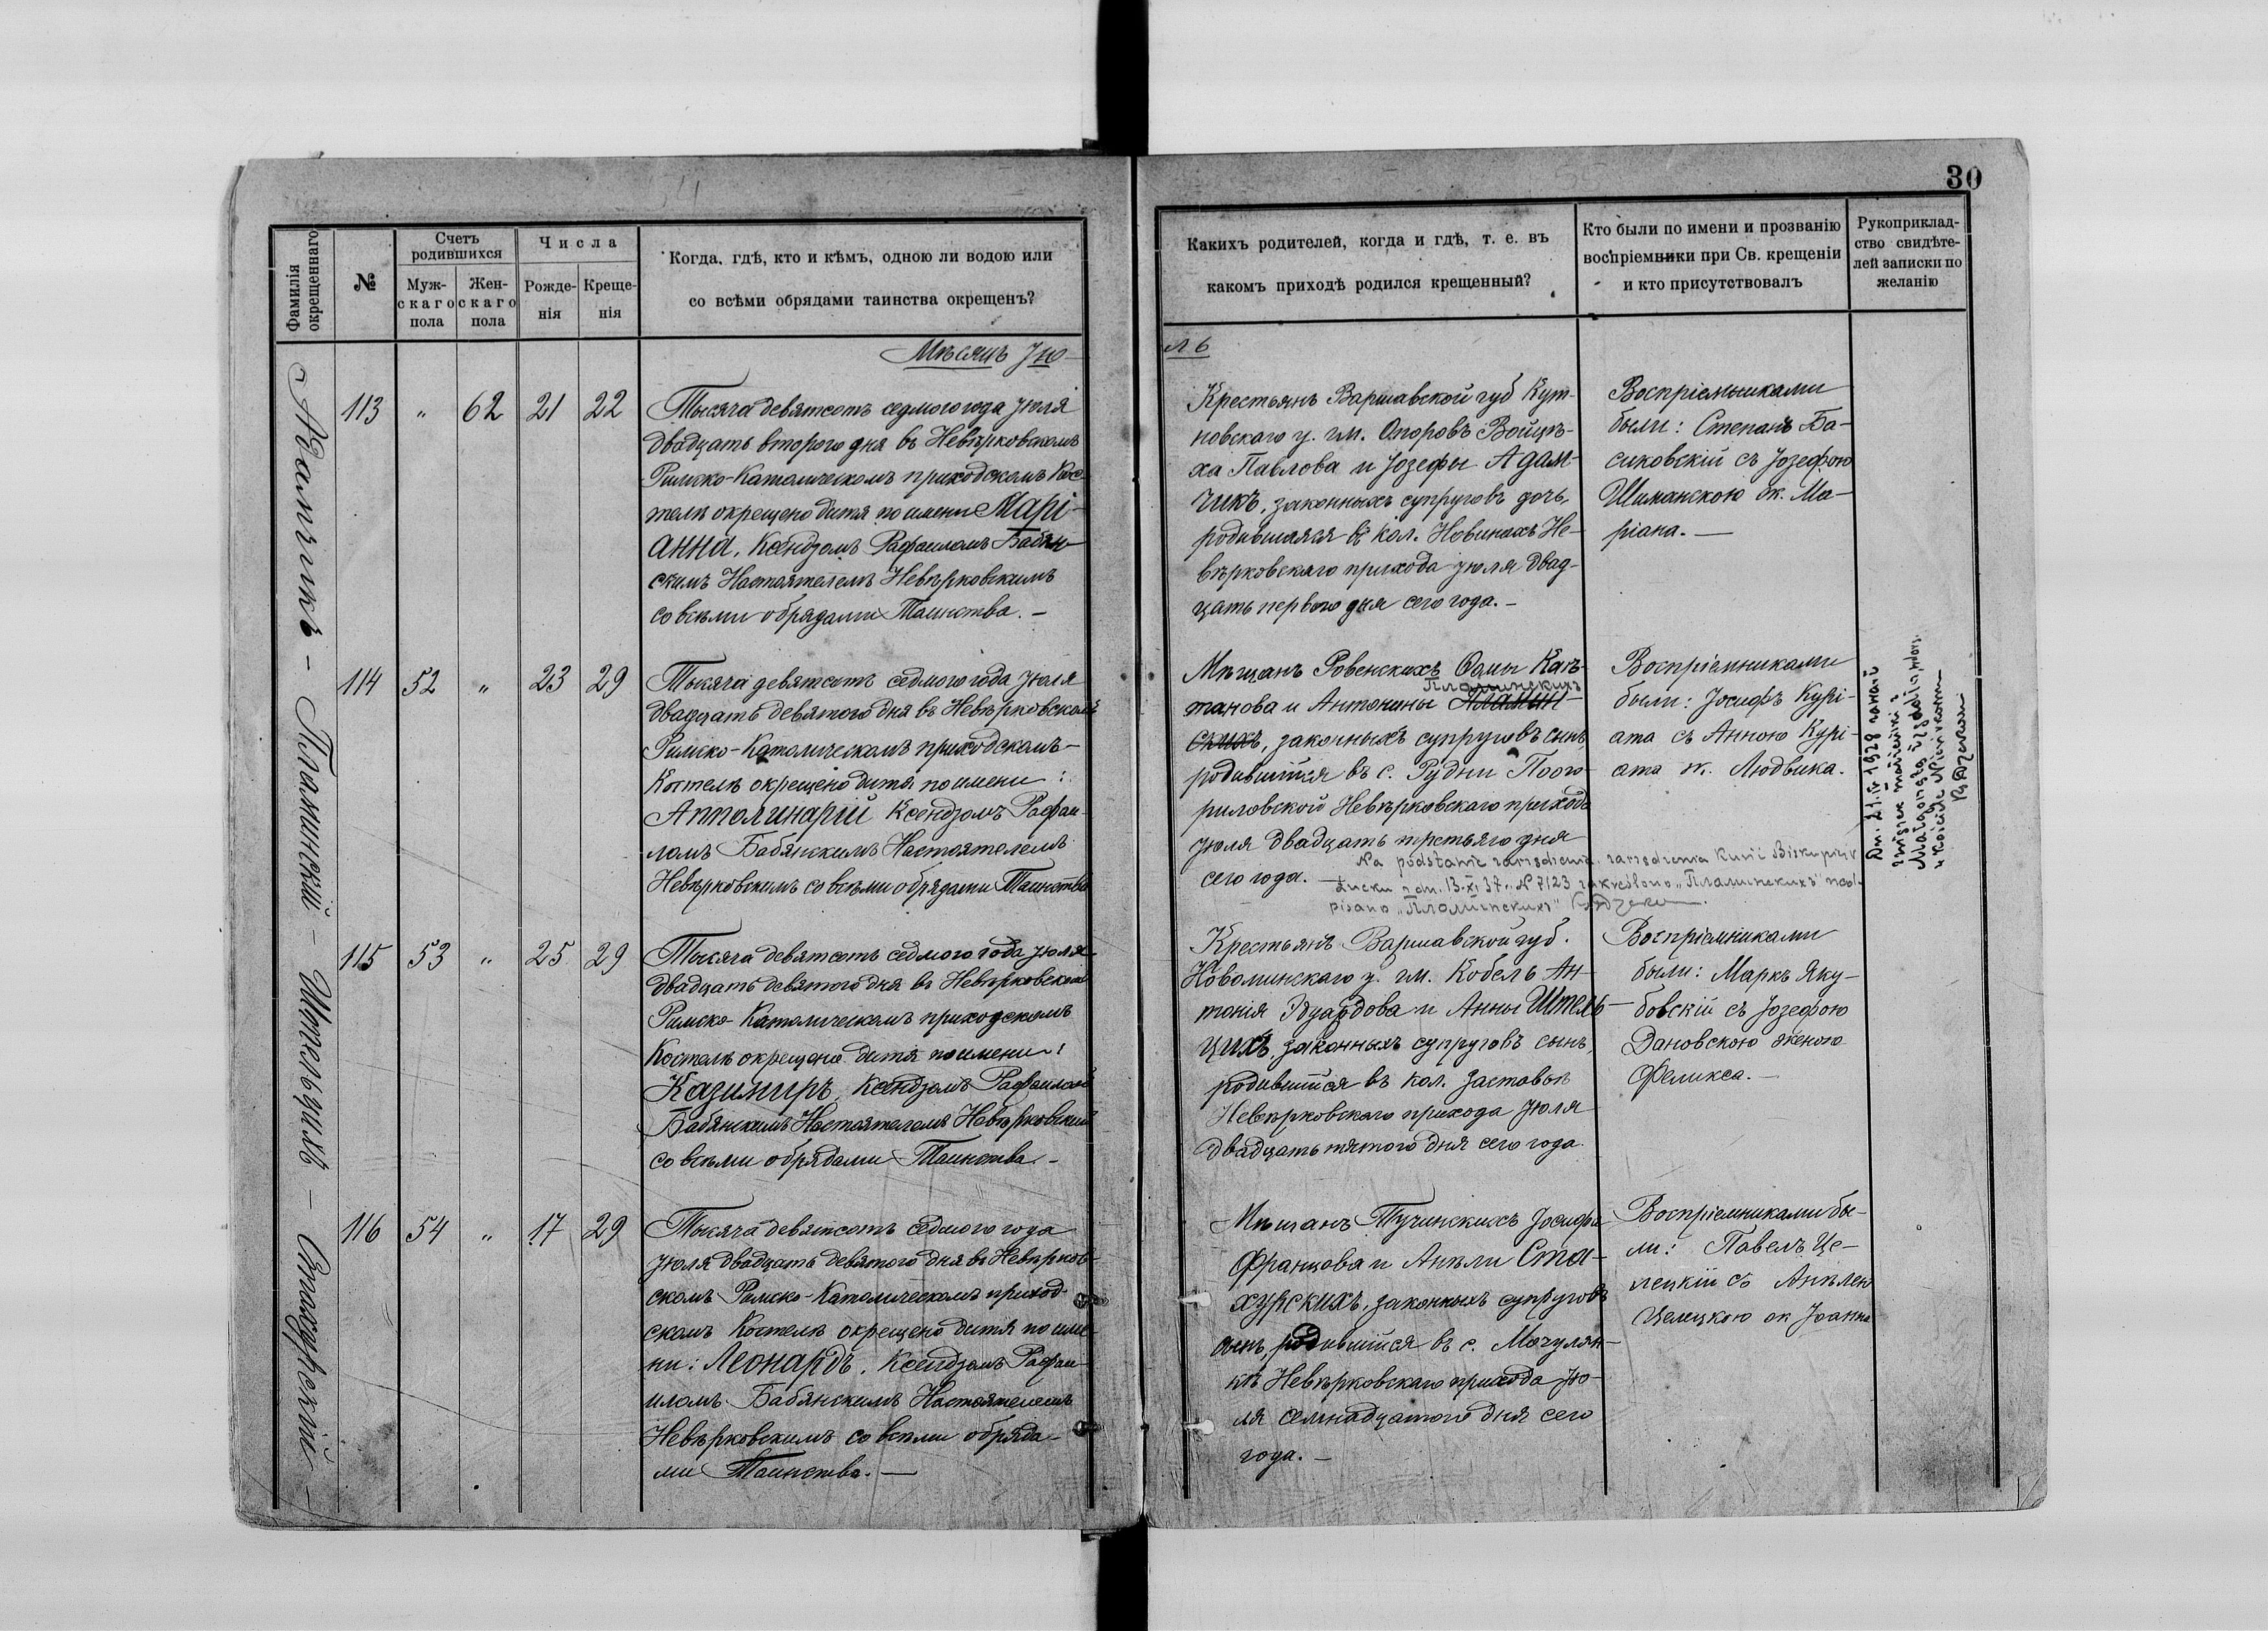 30
Фамилія
окрещеннаго
№
Счетъ
родившихся
Муж-
скаго
пола
Жен-
скаго
пола
Числа
Рожде-
нія
Креще-
нія
Когда, гдѣ, кто и кѣмъ, одною ли водою или
со всѣми обрядами таинства окрещенъ?
Какихъ родителей, когда и гдѣ, т. е. въ
какомъ приходѣ родился крещенный?
Кто были по имени и прозванію
воспріемники при Св. крещеніи
и кто присутствовалъ
Рукоприклад-
ство свидѣте-
лей записки по
желанію
Мѣсяцъ Ію-
ль
Адамчикъ – Пламинскій – Штельцихъ – Стахурскій –
113 " 62 21 22
Тысяча девятсотъ седмого года Іюля
двадцать второго дня въ Невѣрковскомъ
Римско-Католическомъ приходскомъ Кос-
телѣ окрещено дитя по имени Марі-
анна, Ксендзомъ Рафаиломъ Бабян-
скимъ Настоятелемъ Невѣрковскимъ
со всѣми обрядами Таинства. –
Крестьянъ Варшавской губ Кут-
новскаго у. гм. Опоровъ Войцѣ-
ха Павлова и Іозефы Адам-
чикъ, законныхъ супруговъ дочь,
родившаяся въ кол. Новинахъ Не-
вѣрковскаго прихода Іюля двад-
цать перваго дня сего года. –
Воспріемниками
были: Степанъ Ба-
сиковскій съ Іозефою
Шиманскою ж. Ма-
ріана. –
114 52 " 23 29
Тысяча девятсотъ седмого года Іюля
двадцать девятого дня въ Невѣрковскомъ
Римско-Католическомъ приходскомъ
Костелѣ окрещено дитя по имени:
Апполинарій Ксендзомъ Рафаи-
ломъ Бабянскимъ Настоятелемъ
Невѣрковскимъ со всѣми обрядами Таинства
Мѣщанъ Ровенскихъ Ѳомы Каэ-
Пламинскихъ
танова и Антонины Пламин-
скихъ, законныхъ супруговъ сынъ,
родившійся въ с. Рудни Пого-
риловской Невѣрковскаго прихода
Іюля двадцать третьяго дня
сего года. –
Na podstawie zarządzenia Kurii Biskupiej
Łucku z dn. 13.XI.37. N 7123 zakreślono „Пламинскихъ" nad-
pisano „Пломинскихъ"
Воспріемниками
были: Іосифъ Курі-
ата съ Анною Курі-
ата ж. Людвика.
Dn. 21.IV 1928 zawarł
związek małżeński z
Małgorzatą
w kościele
115 53 " 25 29
Тысяча девятсотъ седмого года Іюля
двадцать девятого дня въ Невѣрковскомъ
Римско-Католическомъ приходскомъ
Костелѣ окрещено дитя по имени:
Казимиръ, Ксендзомъ Рафаиломъ
Бабянскимъ Настоятелемъ Невѣрковскимъ
со всѣми обрядами Таинства –
Крестьянъ Варшавской губ.
Новоминскаго у. гм. Кобель Ан-
тонія Эдуардова и Анны Штель-
цихъ, законныхъ супруговъ сынъ,
родившійся въ кол. Заставье
Невѣрковскаго прихода Іюля
двадцать пятого дня сего года.
Воспріемниками
были: Маркъ Яку-
бовскій съ Іозефою
Дановскою женою
Феликса. –
116 54 " 17 29
Тысяча девятсотъ седмого года
Іюля двадцать девятого дня въ Невѣрков-
скомъ Римско-Католическомъ приход-
скомъ Костелѣ окрещено дитя по име-
ни: Леонардъ, Ксендзомъ Рафаи-
иломъ Бабянскимъ Настоятелемъ
Невѣрковскимъ со всѣми обряда-
ми Таинства. –
Мѣщанъ Тучинскихъ Іосифа
Францова и Анѣли Ста-
хурскихъ, законныхъ супруговъ
сынъ, родившійся въ с. Мочулян-
кѣ Невѣрковскаго прихода Ію-
ля семнадцатого дня сего
года. –
Воспріемниками бы-
ли: Павелъ Це-
лецкій съ Анѣлею
Целецкою ж Іоанна